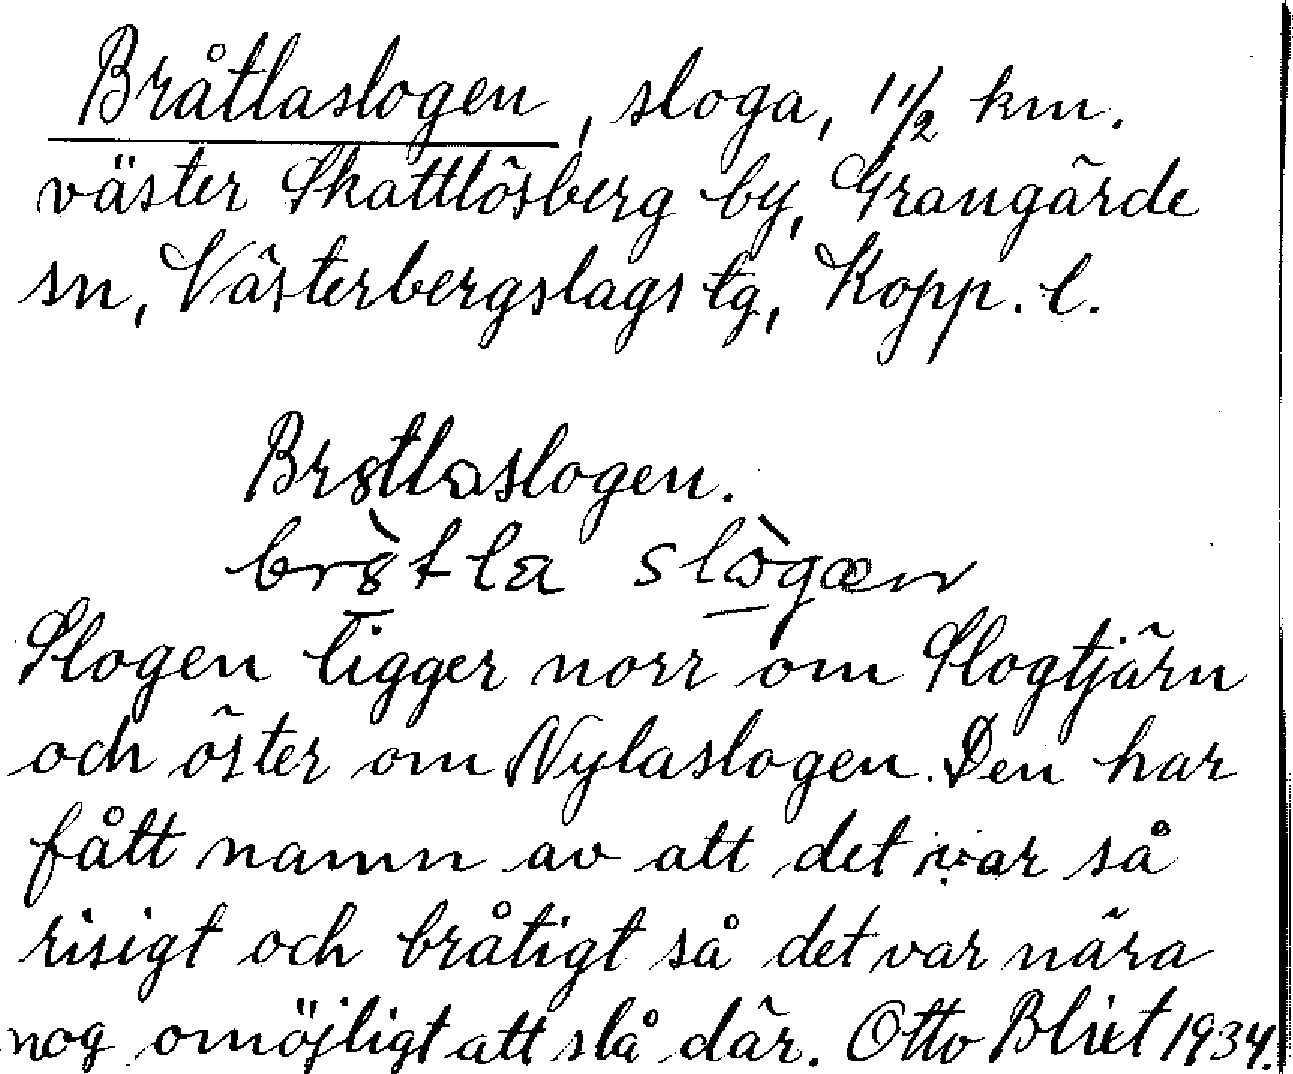 Bråtlaslogen, sloga, 1 1/2 km.
väster Skattlösberg by, Grangärde
sn, Västerbergslags tg, Kopp. l.
Br8tlaslogen.
br8̀tla slògæn
Slogen ligger norr om Slogtjärn
och öster om Nylaslogen. Den har
fått namn av att det var så
risigt och bråtigt så det var nära
nog omöjligt att slå där. Otto Blixt 1934.